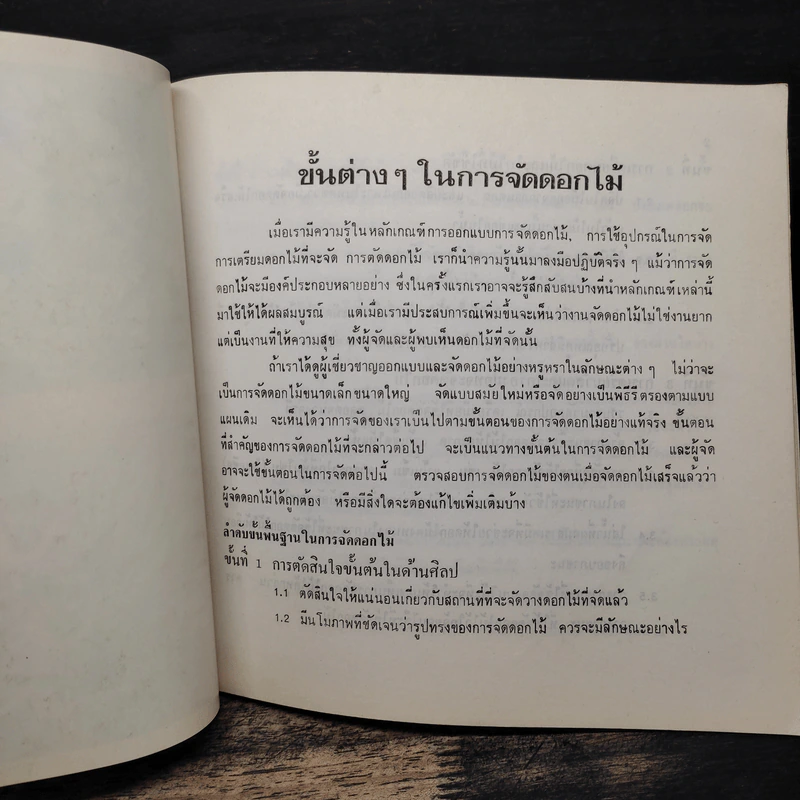 ขั้นต่าง ๆ ในการจัดดอกไม้
เมื่อเรามีความรู้ในหลักเกณฑ์การออกแบบการจัดดอกไม้, การใช้อุปกรณ์ในการจัด
การเตรียมดอกไม้ที่จะจัด การตัดดอกไม้ เราก็นำความรู้นั้นมาลงมือปฏิบัติจริง ๆ แม้ว่าการจัด
ดอกไม้จะมีองค์ประกอบหลายอย่าง ซึ่งในครั้งแรกเราอาจจะรู้สึกสับสนบ้างที่นำหลักเกณฑ์เหล่านี้
มาใช้ให้ได้ผลสมบูรณ์ แต่เมื่อเรามีประสบการณ์เพิ่มขึ้นจะเห็นว่างานจัดดอกไม้ไม่ใช่งานยาก
แต่เป็นงานที่ให้ความสุข ทั้งผู้จัดและผู้พบเห็นดอกไม้ที่จัดนั้น
ถ้าเราได้ดูผู้เชี่ยวชาญออกแบบและจัดดอกไม้อย่างหรูหราในลักษณะต่าง ๆ ไม่ว่าจะ
เป็นการจัดดอกไม้ขนาดเล็กขนาดใหญ่ จัดแบบสมัยใหม่หรือจัดอย่างเป็นพิธีรีตรองตามแบบ
แผนเดิม จะเห็นได้ว่าการจัดของเราเป็นไปตามขั้นตอนของการจัดดอกไม้อย่างแท้จริง ขั้นตอน
ที่สำคัญของการจัดดอกไม้ที่จะกล่าวต่อไป จะเป็นแนวทางขั้นต้นในการจัดดอกไม้ และผู้จัด
อาจจะใช้ขั้นตอนในการจัดต่อไปนี้ ตรวจสอบการจัดดอกไม้ของตนเมื่อจัดดอกไม้เสร็จแล้วว่า
ผู้จัดดอกไม้ได้ถูกต้อง หรือมีสิ่งใดจะต้องแก้ไขเพิ่มเติมบ้าง
ลำดับขั้นพื้นฐานในการจัดดอกไม้
ขั้นที่ 1 การตัดสินใจขั้นต้นในด้านศิลป
1.1 ตัดสินใจให้แน่นอนเกี่ยวกับสถานที่ที่จะจัดวางดอกไม้ที่จัดแล้ว
1.2 มีมโนภาพที่ชัดเจนว่ารูปทรงของการจัดดอกไม้ ควรจะมีลักษณะอย่างไร